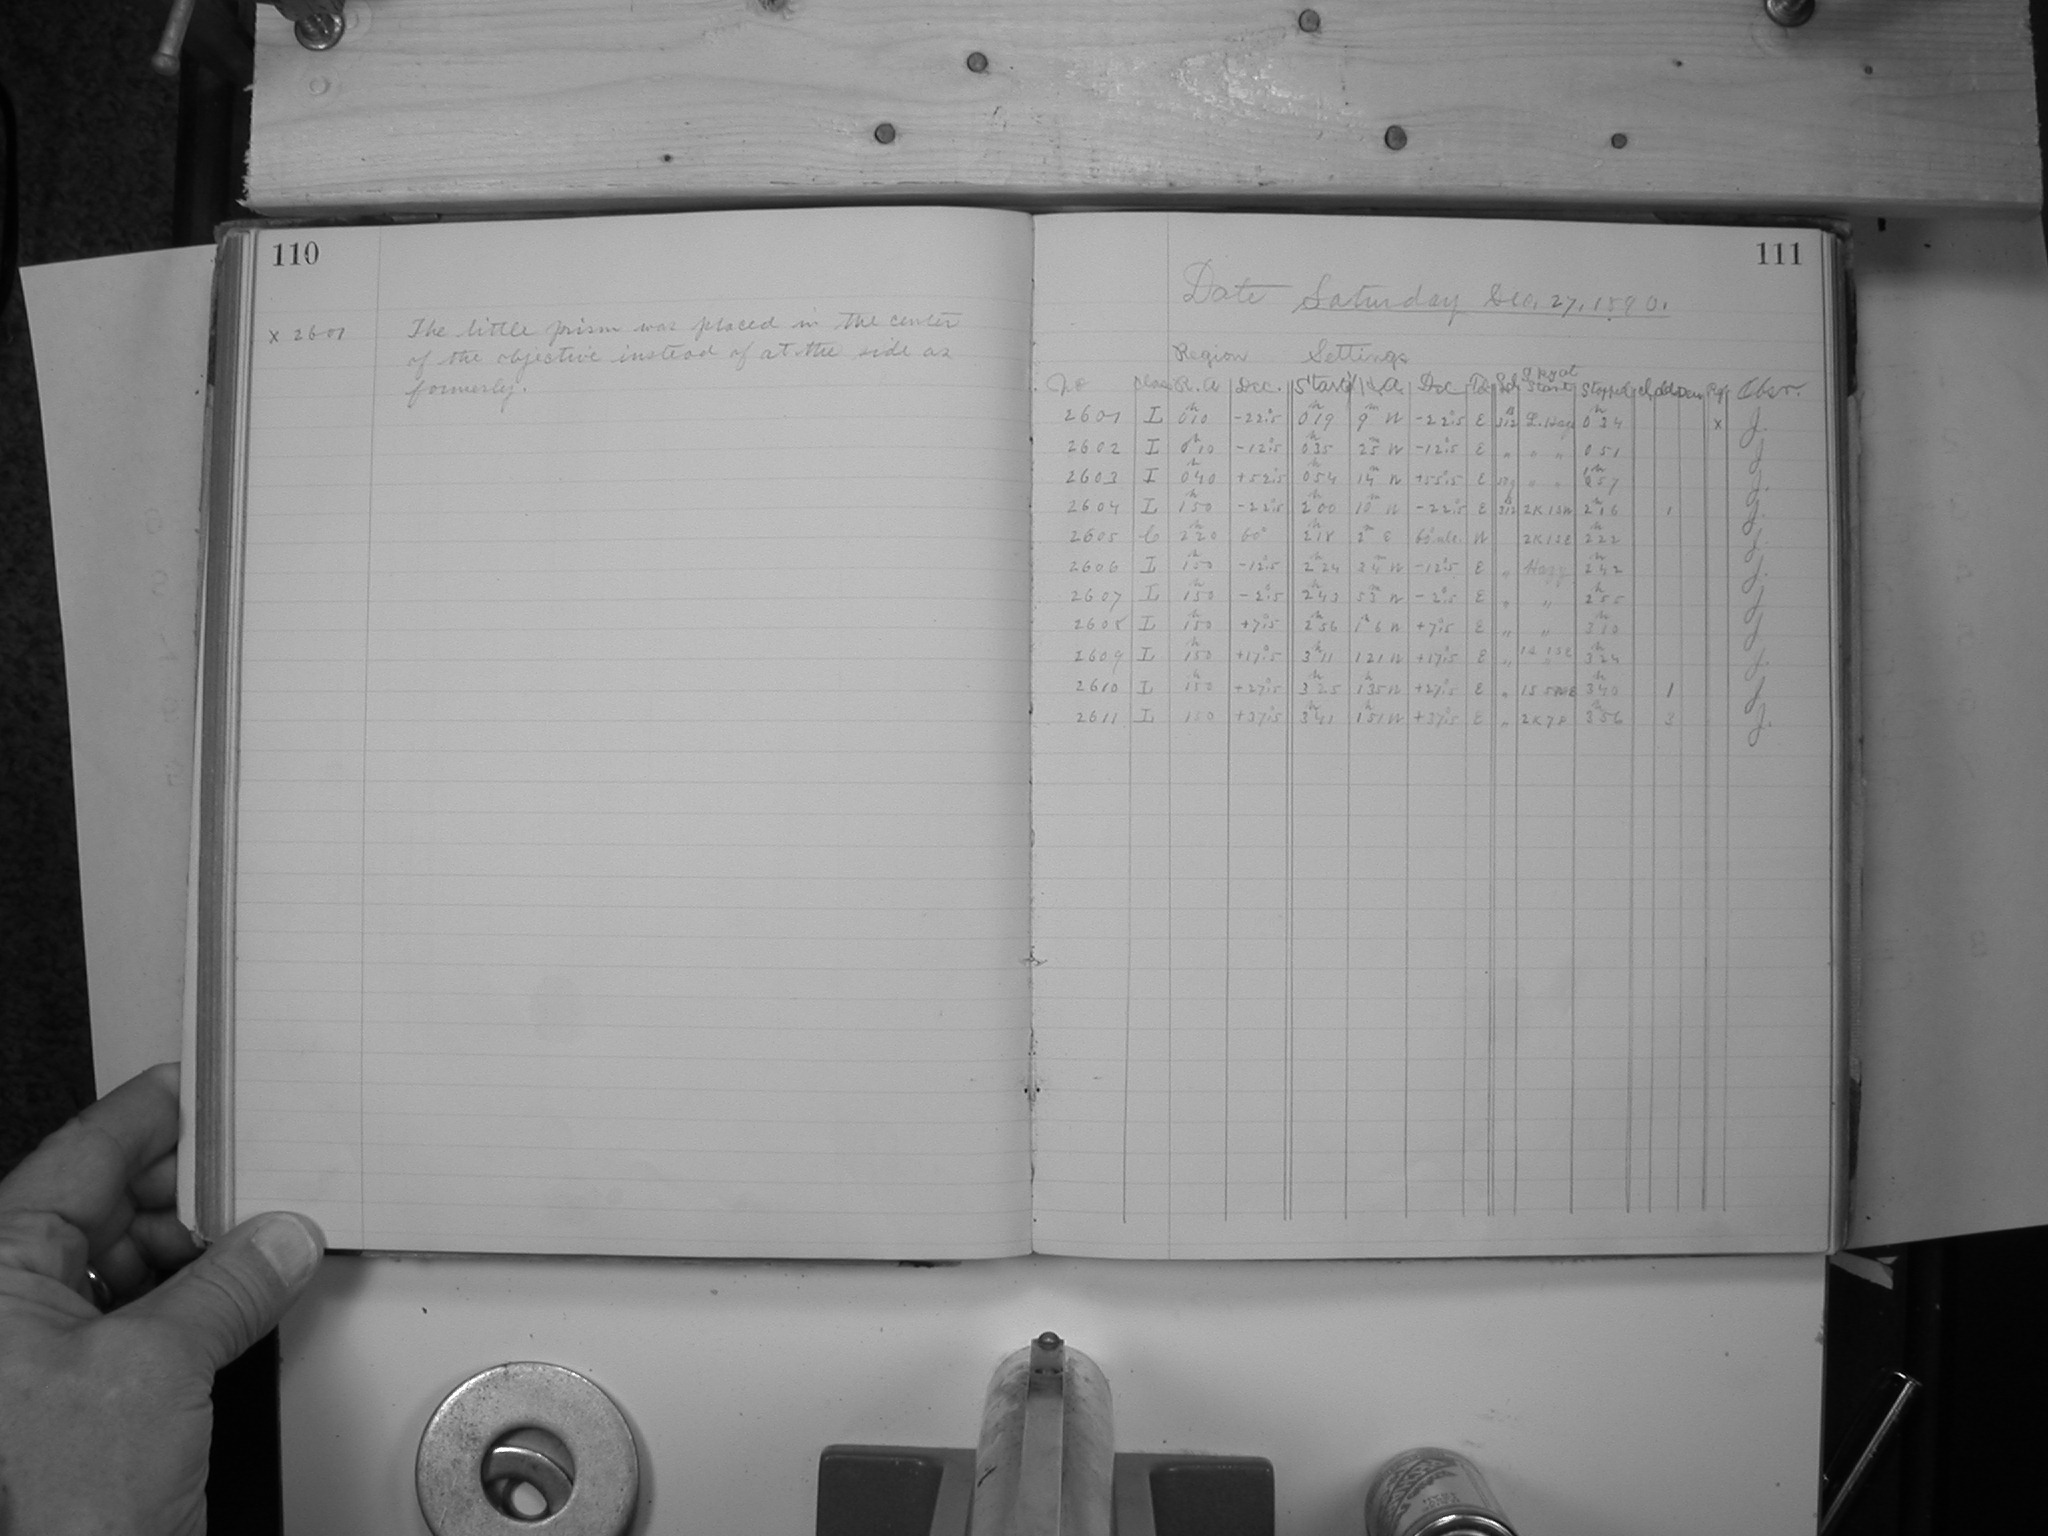 110
x 2601 The little prism was placed in the center
of the objective instead of at the side as
formerly.
111
Date Saturday Dec. 27, 1890.
Region Settings
No Class R.A Dec. Start H.A Dec Sky at Start Stopped Obsr.
2601 I 0h10 -22°.5 0h19 9m W -22°.5 E 0h34 x J.
2602 I 0h10 -12°.5 0h35 25m W -12°.5 E " " " 0 51 J.
2603 I 0h40 +52°.5 0h54 14m W +55°.5 E " " J.
2604 I 1h50 -22°.5 2h00 10m W -22°.5 E 2h16 1 J.
2605 C 2h20 60° 2h18 2m E W 2h22 J.
2606 I 1h50 -12°.5 2h24 34m W -12°.5 E " Hazy 2h42 J.
2607 I 1h50 -2°.5 2h43 53m W -2°.5 E " " 2h55 J.
2608 I 1h50 +7°.5 2h56 1h 6 W +7°.5 E " " 3h10 J.
2609 I 1h50 +17°.5 3h11 1 21 W +17°.5 E " 3h24 J.
2610 I 1h50 +27°.5 3h25 1h35 W +27°.5 E " 3h40 1 J.
2611 I 1 50 +37°.5 3h41 1h51 W +37°.5 E " 3h56 3 J.